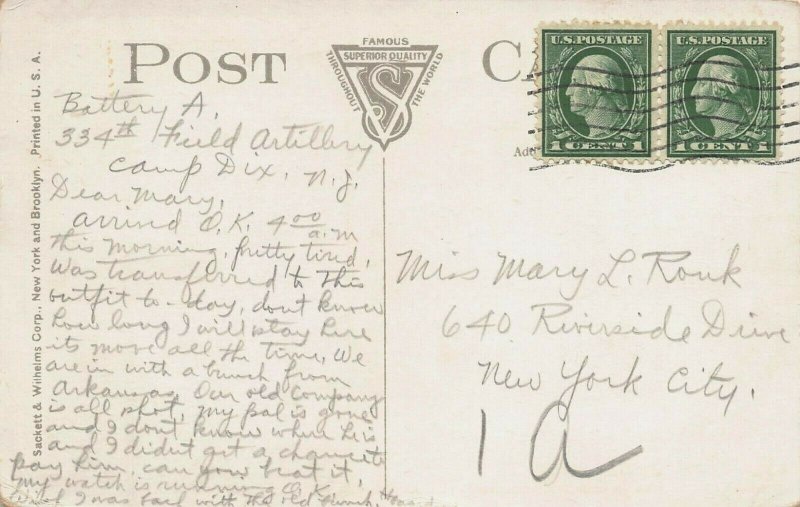 POST CA
FAMOUS
SUPERIOR QUALITY
THROUGHOUT
THE WORLD
S
U.S. POSTAGE
1 CENT 1
U.S. POSTAGE
1 CENT 1
Add
Sackett & Wilhelms Corp., New York and Brooklyn. Printed in U. S. A.
Battery A.
334th Field Artillery
Camp Dix, N.J.
Dear Mary,
Arrived O.K. 4 00 a.m
this morning, pretty tired,
Was transferred to this
outfit to-day, dont know
how long I will stay here
its move all the time, We
are in with a bunch from
Arkansas, Our old Company
is all shot, my pal is gone
and I dont know where he is
and I didnt get a chance to
pay him, can you beat it,
my watch is running O.K.
Wish I was back with the old bunch,
Miss Mary L. Ronk
640 Riverside Drive
New York City.
1a